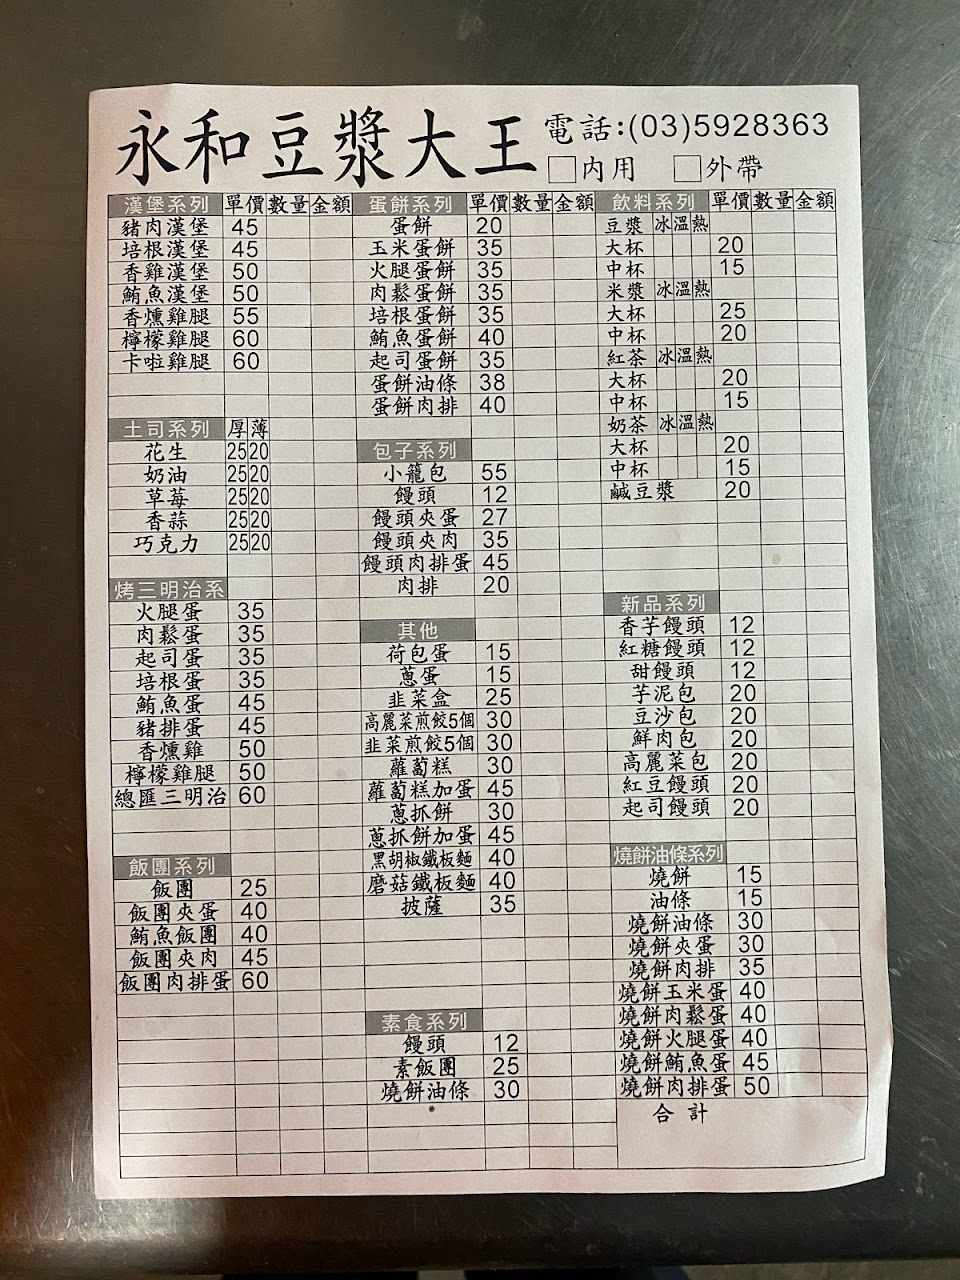 永和豆漿大王
電話:(03)5928363
□內用 □外帶
漢堡系列 單價 數量 金額
豬肉漢堡 45
培根漢堡 45
香雞漢堡 50
鮪魚漢堡 50
香燻雞腿 55
檸檬雞腿 60
卡啦雞腿 60
土司系列 厚 薄
花生 25 20
奶油 25 20
草莓 25 20
香蒜 25 20
巧克力 25 20
烤三明治系
火腿蛋 35
肉鬆蛋 35
起司蛋 35
培根蛋 35
鮪魚蛋 45
豬排蛋 45
香燻雞 50
檸檬雞腿 50
總匯三明治 60
飯團系列
飯團 25
飯團夾蛋 40
鮪魚飯團 40
飯團夾肉 45
飯團肉排蛋 60
蛋餅系列 單價 數量 金額
蛋餅 20
玉米蛋餅 35
火腿蛋餅 35
肉鬆蛋餅 35
培根蛋餅 35
鮪魚蛋餅 40
起司蛋餅 35
蛋餅油條 38
蛋餅肉排 40
包子系列
小籠包 55
饅頭 12
饅頭夾蛋 27
饅頭夾肉 35
饅頭肉排蛋 45
肉排 20
其他
荷包蛋 15
蔥蛋 15
韭菜盒 25
高麗菜煎餃5個 30
韭菜煎餃5個 30
蘿蔔糕 30
蘿蔔糕加蛋 45
蔥抓餅 30
蔥抓餅加蛋 45
黑胡椒鐵板麵 40
磨菇鐵板麵 40
披薩 35
素食系列
饅頭 12
素飯團 25
燒餅油條 30
飲料系列 單價 數量 金額
豆漿 冰 溫 熱
大杯 20
中杯 15
米漿 冰 溫 熱
大杯 25
中杯 20
紅茶 冰 溫 熱
大杯 20
中杯 15
奶茶 冰 溫 熱
大杯 20
中杯 15
鹹豆漿 20
新品系列
香芋饅頭 12
紅糖饅頭 12
甜饅頭 12
芋泥包 20
豆沙包 20
鮮肉包 20
高麗菜包 20
紅豆饅頭 20
起司饅頭 20
燒餅油條系列
燒餅 15
油條 15
燒餅油條 30
燒餅夾蛋 30
燒餅肉排 35
燒餅玉米蛋 40
燒餅肉鬆蛋 40
燒餅火腿蛋 40
燒餅鮪魚蛋 45
燒餅肉排蛋 50
合計